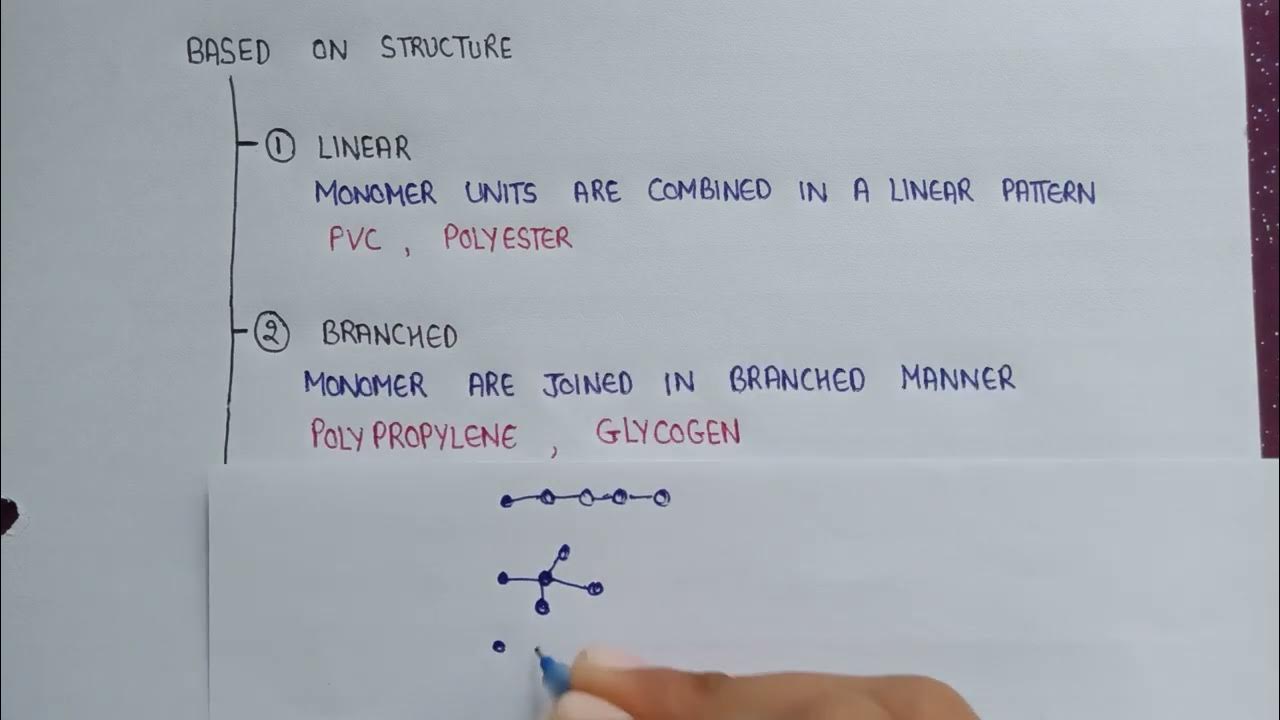 BASED ON STRUCTURE
① LINEAR
MONOMER UNITS ARE COMBINED IN A LINEAR PATTERN
PVC , POLYESTER
② BRANCHED
MONOMER ARE JOINED IN BRANCHED MANNER
POLYPROPYLENE , GLYCOGEN